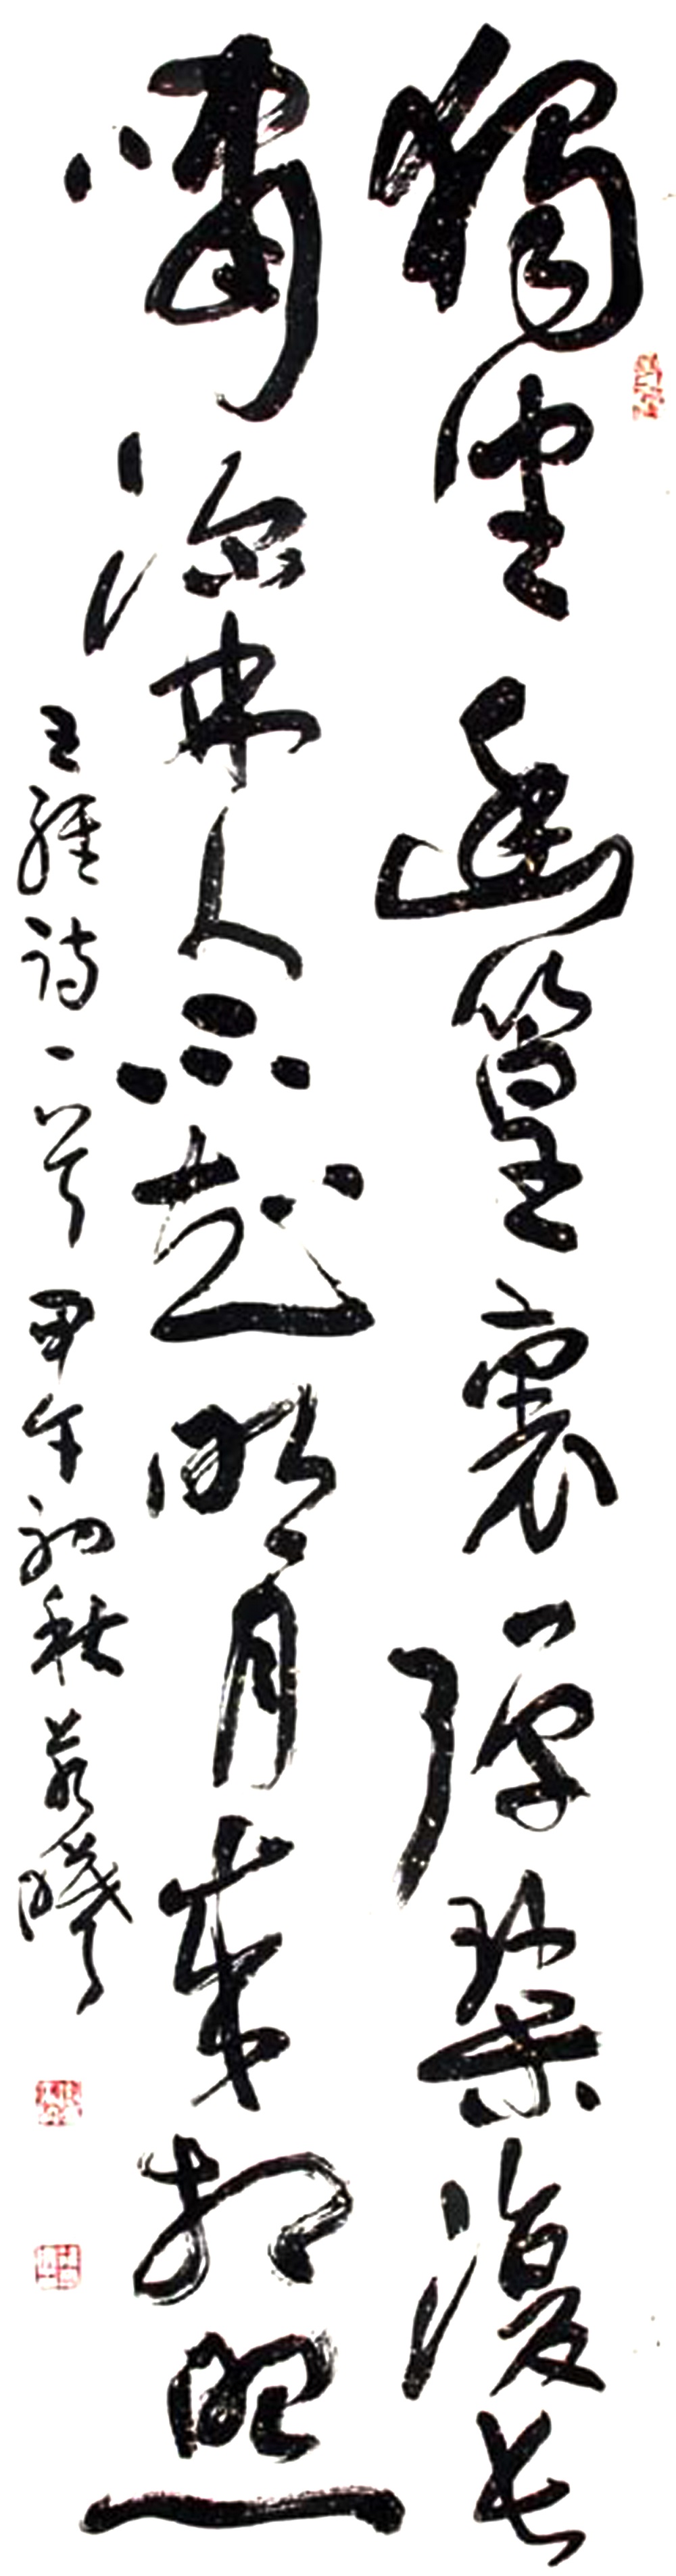 獨坐幽篁裏彈琴復長
嘯深林人不知明月來相照
王維詩一首 甲午初秋 若曦